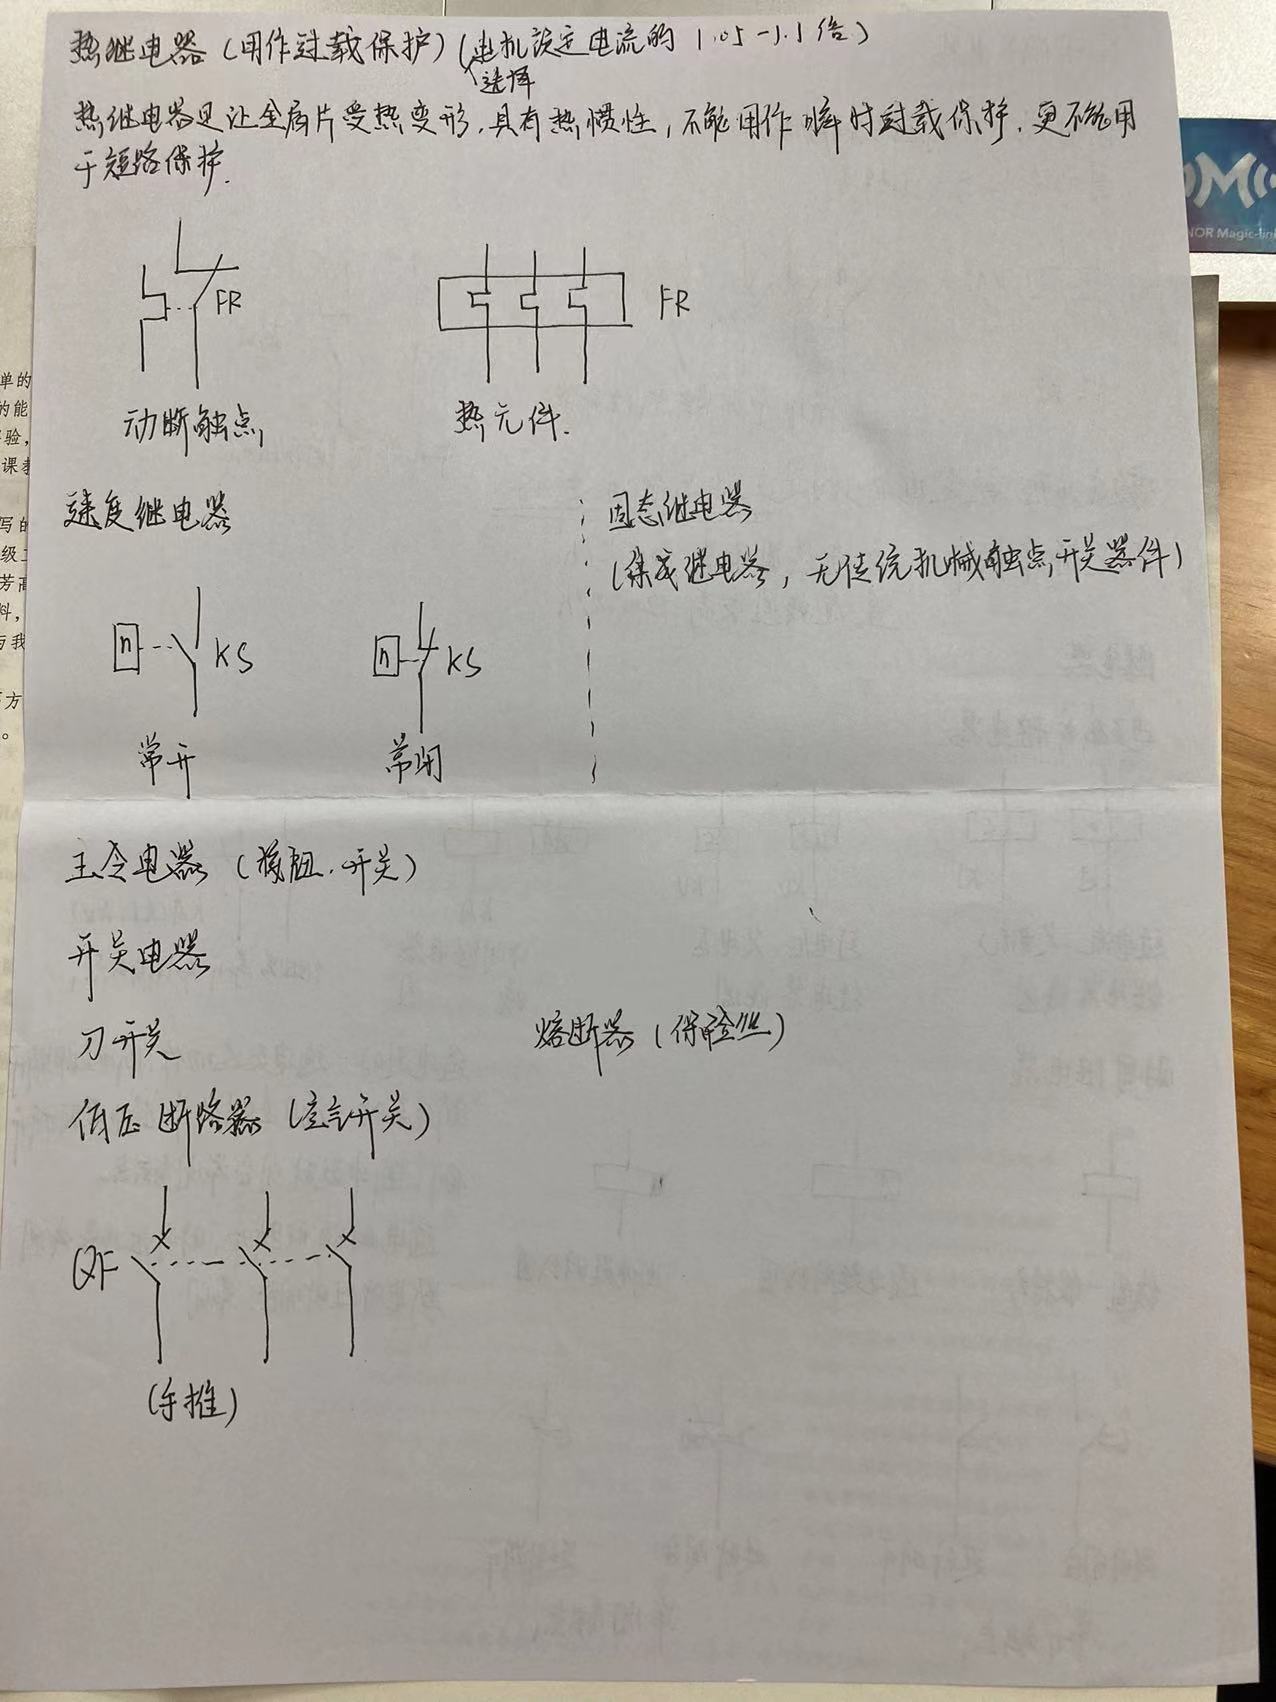 热继电器(用作过载保护)(电机设定电流的1.05-1.1倍)
选择
热继电器是让金属片受热变形,具有热惯性,不能用作瞬时过载保护.更不能用
于短路保护.
FR
FR
动断触点
热元件.
速度继电器
固态继电器
(集成继电器,无传统机械触点开关器件)
n KS
n KS
常开
常闭
主令电器(按钮.开关)
开关电器
刀开关
熔断器(保险丝)
低压断路器(空气开关)
QF
(手推)
NOR Magic-link
单的
的能
验,
课
写的
级
芳高
料,
与我
方
。